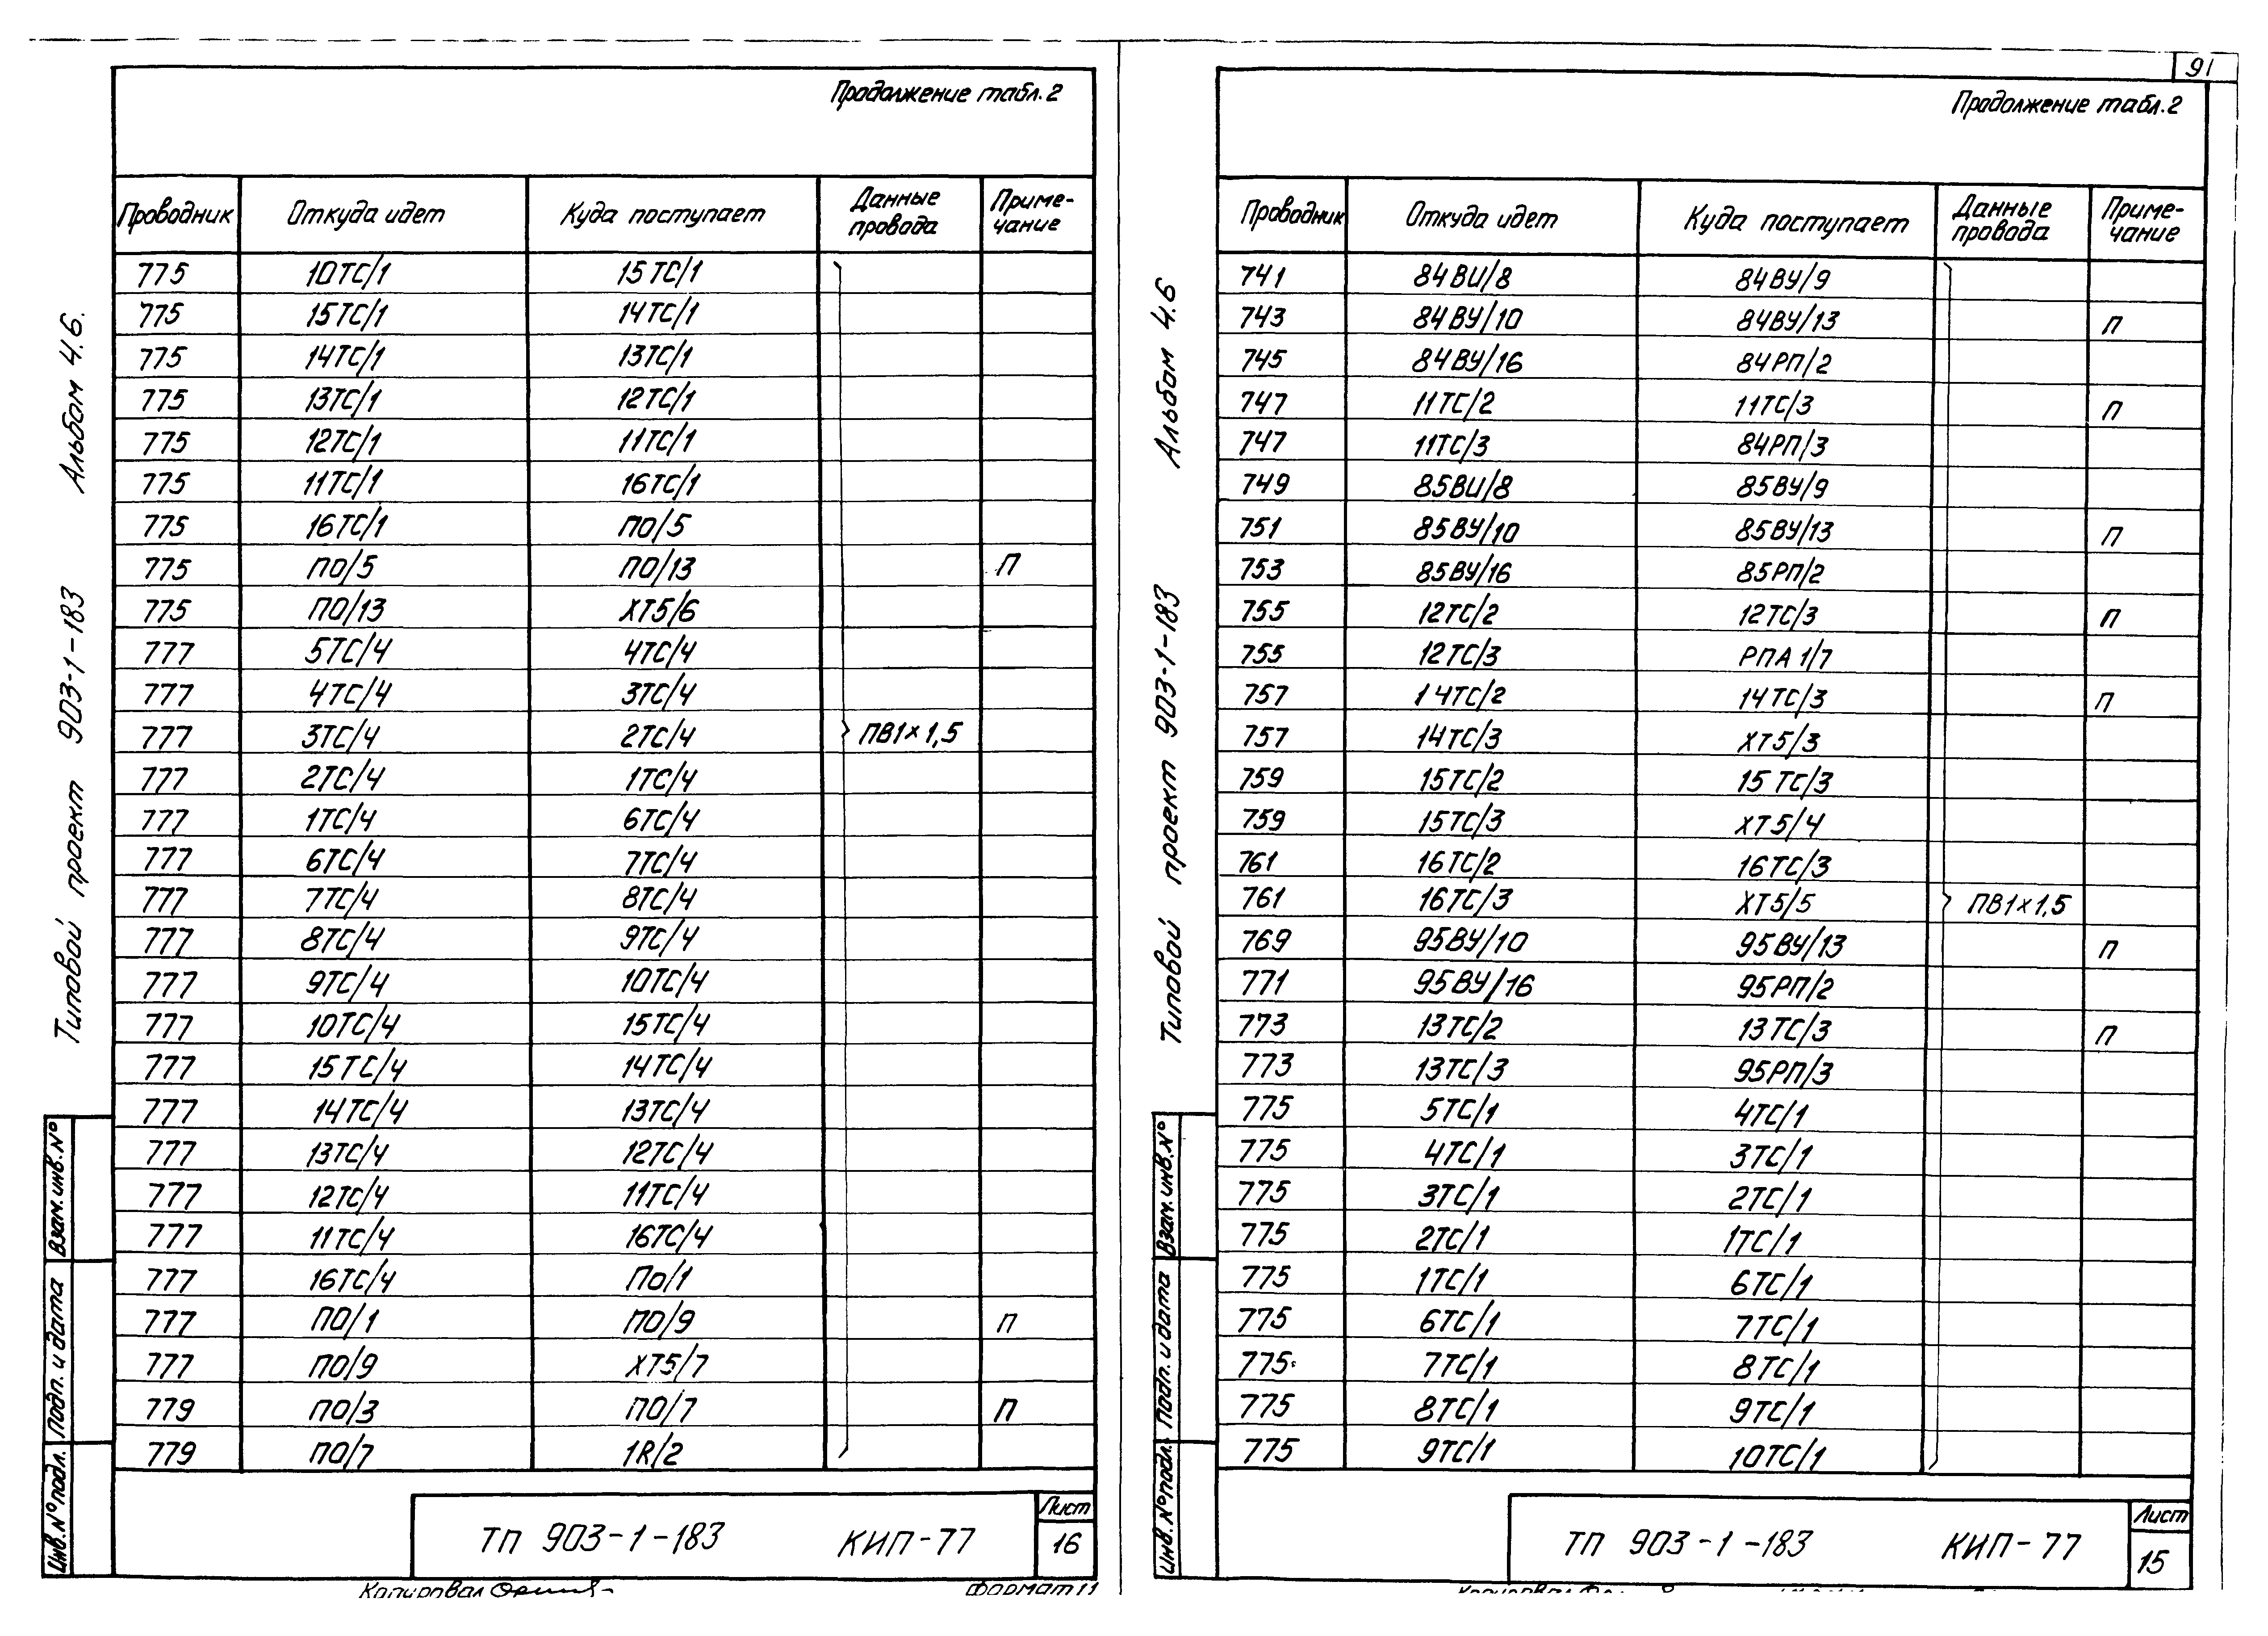 Продолжение табл. 2
Проводник Откуда идет Куда поступает Данные провода Приме-чание
775 10ТС/1 15ТС/1
775 15ТС/1 14ТС/1
775 14ТС/1 13ТС/1
775 13ТС/1 12ТС/1
775 12ТС/1 11ТС/1
775 11ТС/1 16ТС/1
775 16ТС/1 ПО/5
775 ПО/5 ПО/13 П
775 ПО/13 ХТ5/6
777 5ТС/4 4ТС/4
777 4ТС/4 3ТС/4
777 3ТС/4 2ТС/4 ПВ1×1,5
777 2ТС/4 1ТС/4
777 1ТС/4 6ТС/4
777 6ТС/4 7ТС/4
777 7ТС/4 8ТС/4
777 8ТС/4 9ТС/4
777 9ТС/4 10ТС/4
777 10ТС/4 15ТС/4
777 15ТС/4 14ТС/4
777 14ТС/4 13ТС/4
777 13ТС/4 12ТС/4
777 12ТС/4 11ТС/4
777 11ТС/4 16ТС/4
777 16ТС/4 ПО/1
777 ПО/1 ПО/9 П
777 ПО/9 ХТ5/7
779 ПО/3 ПО/7 П
779 ПО/7 1R/2
ТП 903-1-183 КИП-77
Лист
16
Копировал
Формат 11
Типовой проект 903-1-183 Альбом 4.6.
Инв. № подл. Подп. и дата Взам. инв. №
91
Продолжение табл. 2
Проводник Откуда идет Куда поступает Данные провода Приме-чание
741 84ВИ/8 84ВУ/9
743 84ВУ/10 84ВУ/13 П
745 84ВУ/16 84РП/2
747 11ТС/2 11ТС/3 П
747 11ТС/3 84РП/3
749 85ВИ/8 85ВУ/9
751 85ВУ/10 85ВУ/13 П
753 85ВУ/16 85РП/2
755 12ТС/2 12ТС/3 П
755 12ТС/3 РПА1/7
757 14ТС/2 14ТС/3 П
757 14ТС/3 ХТ5/3
759 15ТС/2 15ТС/3
759 15ТС/3 ХТ5/4
761 16ТС/2 16ТС/3
761 16ТС/3 ХТ5/5 ПВ1×1,5
769 95ВУ/10 95ВУ/13 П
771 95ВУ/16 95РП/2
773 13ТС/2 13ТС/3 П
773 13ТС/3 95РП/3
775 5ТС/1 4ТС/1
775 4ТС/1 3ТС/1
775 3ТС/1 2ТС/1
775 2ТС/1 1ТС/1
775 1ТС/1 6ТС/1
775 6ТС/1 7ТС/1
775 7ТС/1 8ТС/1
775 8ТС/1 9ТС/1
775 9ТС/1 10ТС/1
ТП 903-1-183 КИП-77
Лист
15
Типовой проект 903-1-183 Альбом 4.6
Инв. № подл. Подп. и дата Взам. инв. №